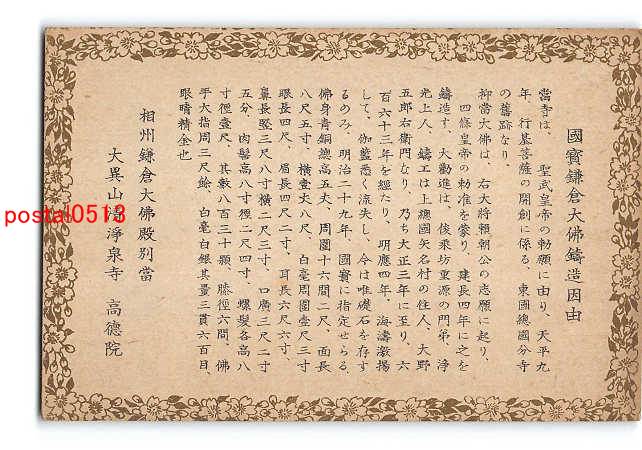 國寳鎌倉大佛鑄造因由
當寺は、聖武皇帝の勅願に由り、天平九
年、行基菩薩の開創に係る、東國總國分寺
の舊跡なり、
抑當大佛は、右大將賴朝公の志願に起り、
四條皇帝の勅准を蒙り、建長四年に之を
鑄造す、大勸進は、俊乘坊重源の門弟、淨
光上人、鑄工は上總國矢名村の住人、大野
五郎右衛門なり、乃ち大正三年に至り、六
百六十三年を經たり、明應四年、海濤激揚
して、伽藍悉く流失し、今は唯礎石を存す
るのみ、明治二十九年、國寳に指定せらる、
佛身青銅總高五丈、周圍十六間二尺、面長
八尺五寸、橫壹丈八尺、白毫周圍壹尺三寸
眼長四尺、眉長四尺二寸、耳長六尺六寸、
鼻長竪三尺八寸橫二尺三寸、口廣三尺二寸
五分、肉髻高八寸徑二尺四寸、螺髮各高八
寸徑壹尺、其數八百三十顆、膝徑六間、佛
手大指周三尺餘、白毫白銀其量三貫六百目、
眼晴精金也
相州鎌倉大佛殿別當
大異山 淨泉寺 高德院
postal0513